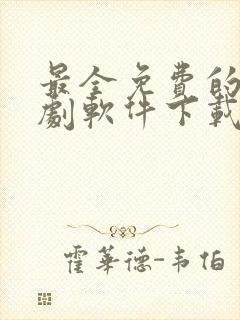 最全免費的
劇軟件下載
霍華德-韦伯